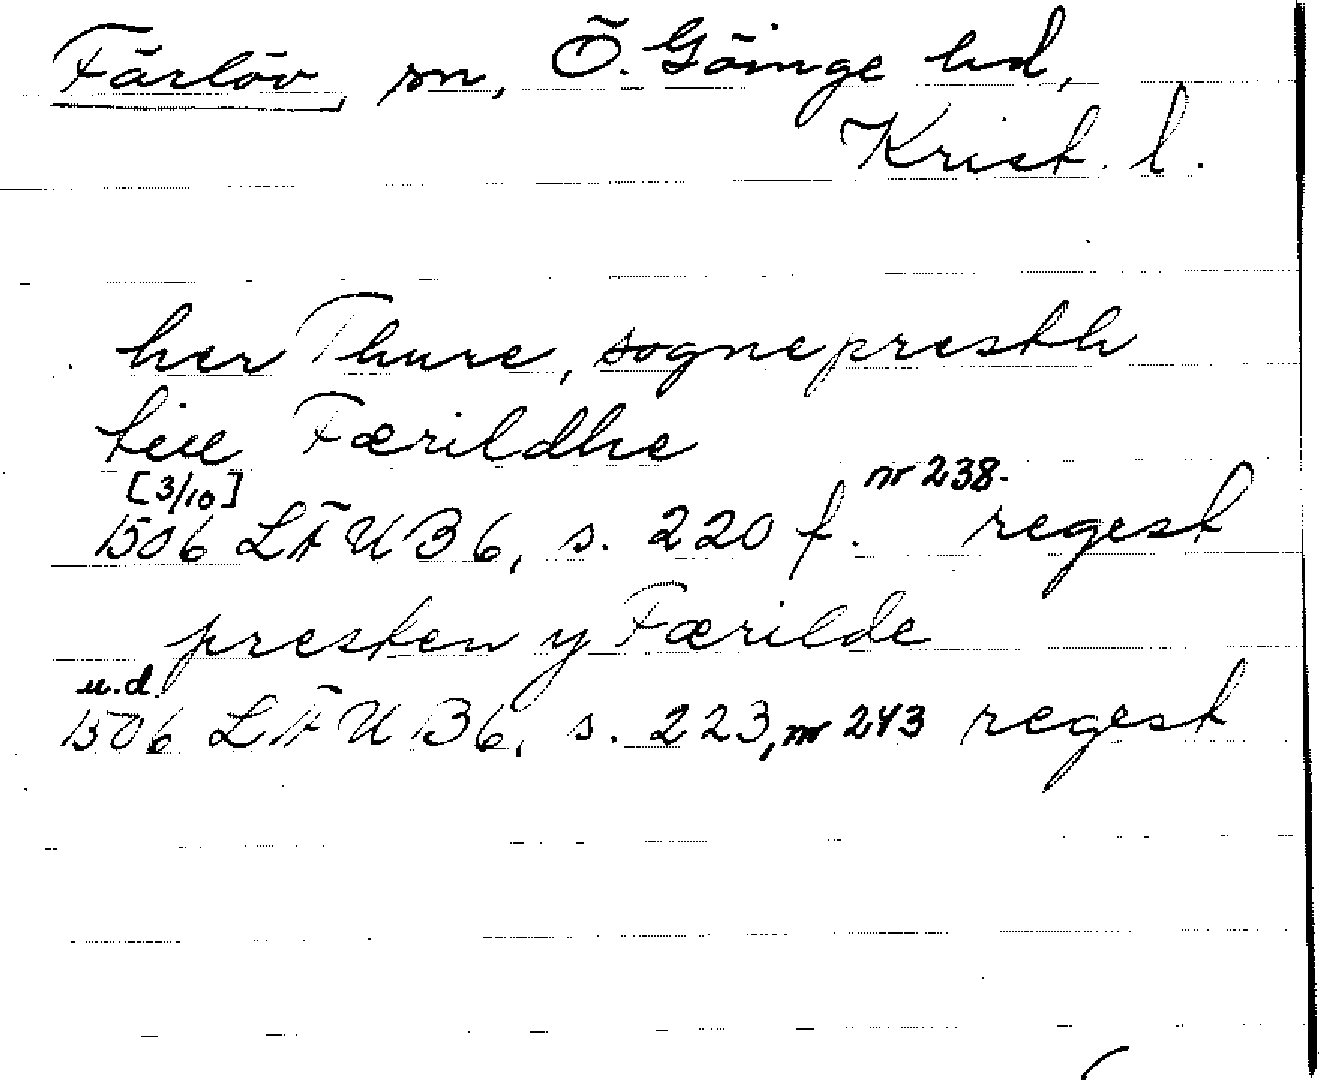 Färlöv sn, Ö. Göinge hd,
Krist. l.
her Thure, sognepresth
tiie Færildhe
[3/10] nr 238.
1506 LÄUB 6, s. 220 f. regest
presten y Færilde
u.d.
1506 LÄUB 6, s. 223, nr 243 regest